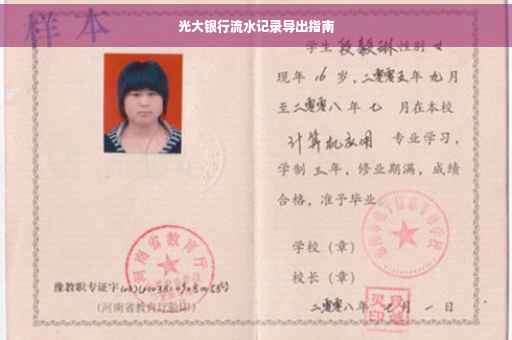 光大银行流水记录导出指南
样本
学生 段毅琳 性别 女
现年 16 岁，二零零五年 九 月
至二零零八 年 七 月在本校
计算机应用 专业学习，
学制 三 年，修业期满，成绩
合格，准予毕业
学校（章）
校长（章）
二零零八年 七 月 一 日
河南省教育厅
豫教职专证字
（河南省教育厅验印）